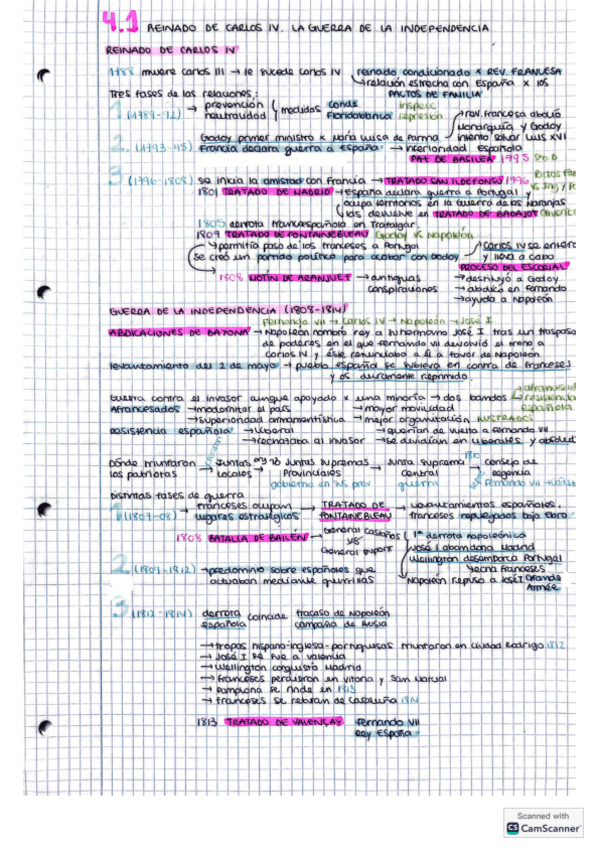 4.1 REINADO DE CARLOS IV. LA GUERRA DE LA INDEPENDENCIA
REINADO DE CARLOS IV
1788 muere Carlos III → le sucede Carlos IV reinado condicionado x REV. FRANCESA
→ relación estrecha con España x los
PACTOS DE FAMILIA
Tres fases de las relaciones:
1 (1789-92) → prevención neutralidad medidas Conde Floridablanca inspecc represión
rev. francesa abolió
Monarquía y Godoy
intentó salvar Luis XVI
2. (1793-95) Godoy primer ministro x María Luisa de Parma
Francia declara guerra a España → inferioridad española
PAZ DE BASILEA 1795 Sto D
3 (1796-1808) se inicia la amistad con Francia → TRATADO SAN ILDEFONSO 1796
1801 TRATADO DE MADRID → España declara guerra a Portugal y
ocupa territorios en la Guerra de las naranjas
las devuelve en TRATADO DE BADAJOZ
1805 derrota francoespañola en Trafalgar.
1807 TRATADO DE FONTAINEBLEAU Godoy vs Napoleón
→ permitía paso de los franceses a Portugal
se creó un partido político para acabar con Godoy
Carlos IV se enteró
y lleva a cabo
PROCESO DEL ESCORIAL
1808 MOTÍN DE ARANJUEZ → antiguas conspiraciones
→ destituyó a Godoy
→ abdicó en Fernando
→ ayuda a Napoleón
GUERRA DE LA INDEPENDENCIA (1808-1814)
Fernando VII → Carlos IV → Napoleón → José I
ABDICACIONES DE BAYONA → Napoleón nombró rey a su hermano José I tras un traspaso
de poderes en el que Fernando VII devolvió el trono a
Carlos IV y éste renunciaba a él a favor de Napoleón
levantamiento del 2 de mayo → pueblo español se subleva en contra de franceses
y es duramente reprimido
Guerra contra el invasor aunque apoyado x una minoría → dos bandos
resistencia
española
Afrancesados → modernizar el país → mayor movilidad
→ superioridad armamentística → mejor organización ILUSTRADOS
resistencia española → liberal → querían de vuelta a Fernando VII
→ rechazaba al invasor → se dividían en liberales y absolut
Dónde triunfaron los patriotas
Juntas Locales
org 18 Juntas Supremas Provinciales
Junta Suprema Central
1810
Consejo de regencia
gobierno en sus prov
guerra
Fernando VII
Distintas fases de guerra
1 (1807-08) → franceses ocupan lugares estratégicos
TRATADO DE FONTAINEBLEAU
→ levantamientos españoles.
franceses replegados bajo Ebro
1808 BATALLA DE BAILÉN → General Castaños
vs
General Dupont
1ª derrota napoleónica
José I abandona Madrid
Wellington desembarca Portugal
y echa franceses
Napoleón repuso a José I Grande
Armée
2. (1809-1812) → predominio sobre españoles que
actuaban mediante guerrillas
3 (1812-1814) derrota española coincide fracaso de Napoleón
campaña de Rusia
→ tropas hispano-inglesa-portuguesas triunfaron en Ciudad Rodrigo 1812
→ José I se fue a Valencia
→ Wellington conquistó Madrid
→ franceses perdieron en Vitoria y San Marcial
→ Pamplona se rinde en 1813
→ franceses se retiran de Cataluña 1814
1813 TRATADO DE VALENÇAY Fernando VII
Rey España
Scanned with
CS CamScanner